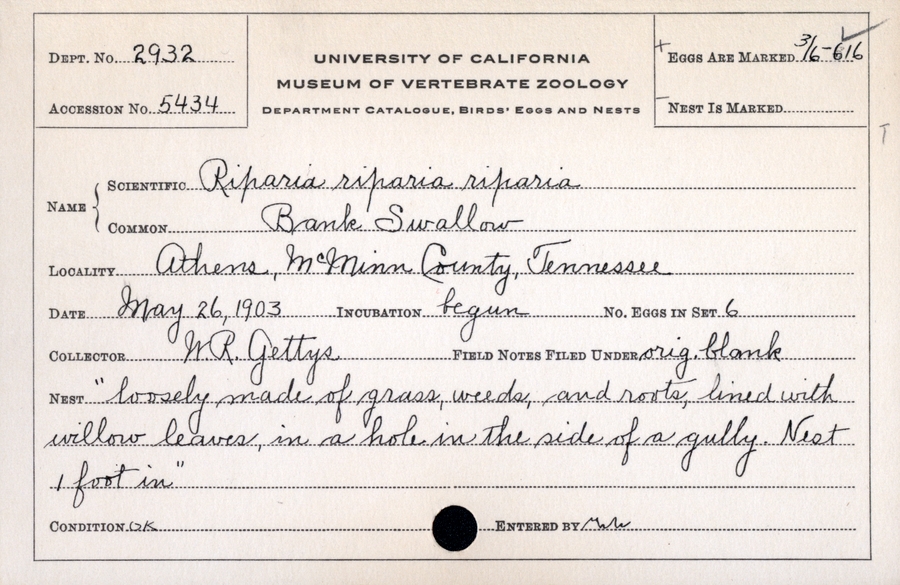 DEPT. No. 2932
ACCESSION No. 5434
UNIVERSITY OF CALIFORNIA
MUSEUM OF VERTEBRATE ZOOLOGY
DEPARTMENT CATALOGUE, BIRDS' EGGS AND NESTS
+ EGGS ARE MARKED 3/6-616 ✓
– NEST IS MARKED
T
NAME { SCIENTIFIC Riparia riparia riparia
COMMON Bank Swallow
LOCALITY Athens, McMinn County, Tennessee
DATE May 26, 1903 INCUBATION begun NO. EGGS IN SET 6
COLLECTOR W.R. Gettys FIELD NOTES FILED UNDER orig. blank
NEST "loosely made of grass, weeds, and roots, lined with
willow leaves, in a hole in the side of a gully. Nest
1 foot in"
CONDITION OK ENTERED BY